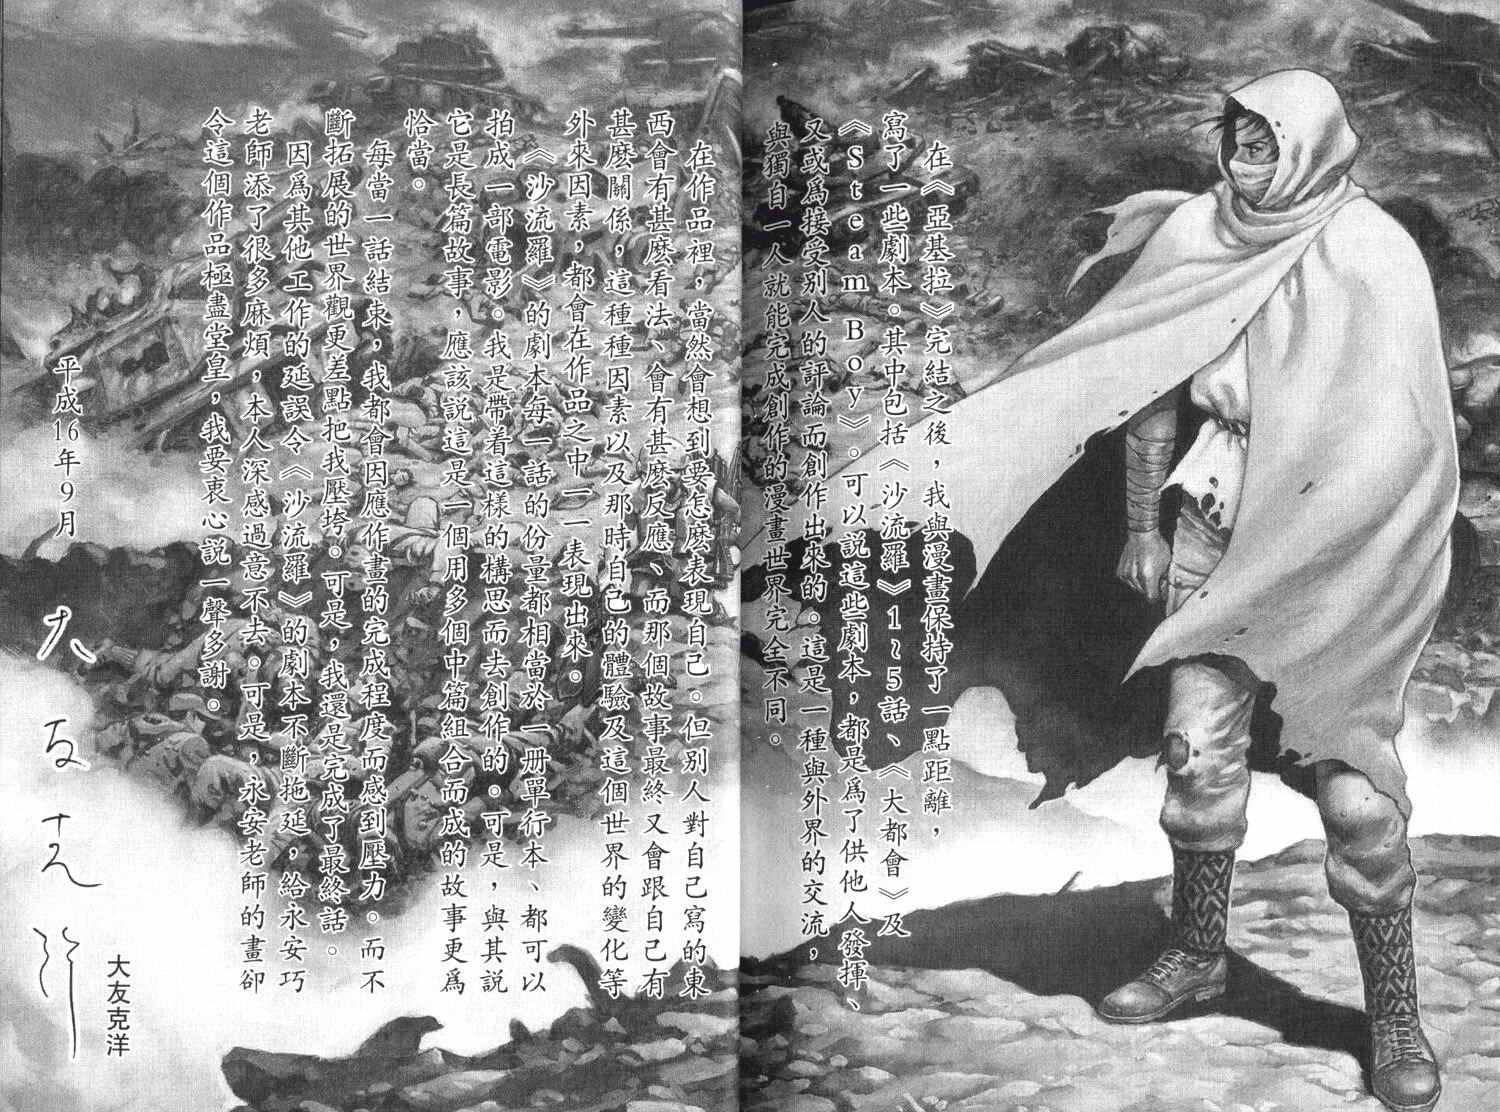 在《亞基拉》完結之後，我與漫畫保持了一點距離，
寫了一些劇本。其中包括《沙流羅》1～5話、《大都會》及
《Steam Boy》。可以說這些劇本，都是爲了供他人發揮、
又或爲接受別人的評論而創作出來的。這是一種與外界的交流，
與獨自一人就能完成創作的漫畫世界完全不同。
在作品裡，當然會想到要怎麽表現自己。但別人對自己寫的東
西會有甚麽看法、會有甚麽反應、而那個故事最終又會跟自己有
甚麽關係，這種種因素以及那時自己的體驗及這個世界的變化等
外來因素，都會在作品之中一一表現出來。
《沙流羅》的劇本每一話的份量都相當於一册單行本、都可以
拍成一部電影。我是帶着這樣的構思而去創作的。可是，與其說
它是長篇故事，應該說這是一個用多個中篇組合而成的故事更爲
恰當。
每當一話結束，我都會因應作畫的完成程度而感到壓力。而不
斷拓展的世界觀更差點把我壓垮。可是，我還是完成了最終話。
因爲其他工作的延誤令《沙流羅》的劇本不斷拖延，給永安巧
老師添了很多麻煩，本人深感過意不去。可是，永安老師的畫卻
令這個作品極盡堂皇，我要衷心說一聲多謝。
平成16年9月
大友克洋
大友克洋